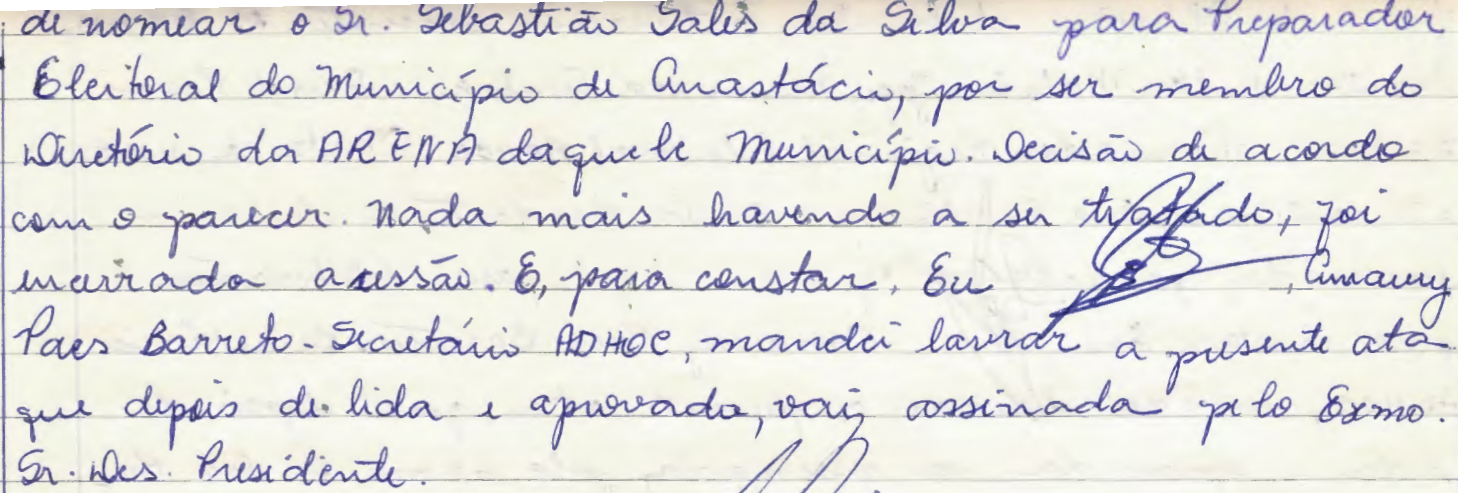 de nomear o Sr. Sebastião Sales da Silva para Preparador
Eleitoral do Município de Anastácio, por ser membro do
Diretório da ARENA daquele Município. Decisão de acordo
com o parecer. Nada mais havendo a ser tratado, foi
encerrada a sessão. E, para constar, Eu , Amaury
Paes Barreto - Secretário ADHOC, mandei lavrar a presente ata
que depois de lida e aprovada, vai, assinada pelo Exmo.
Sr. Des. Presidente.